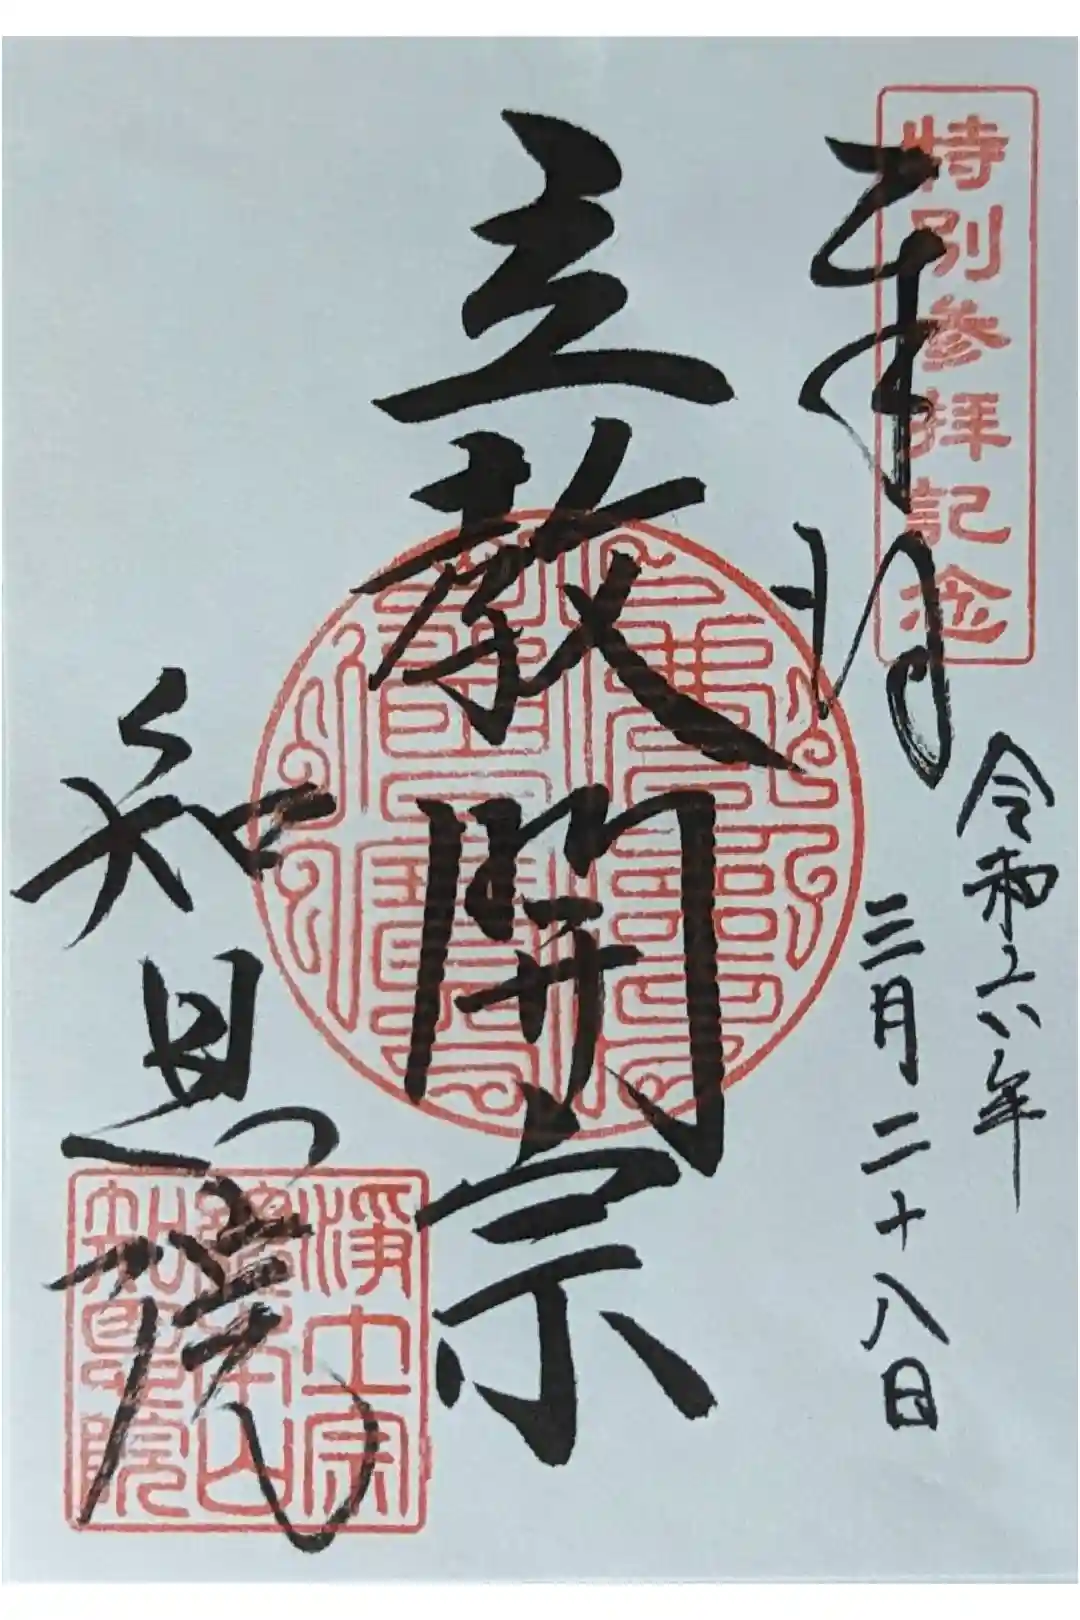 特別参拝記念
奉拝
令和六年
三月二十八日
立教開宗
知恩院
浄土宗
總本山
知恩院